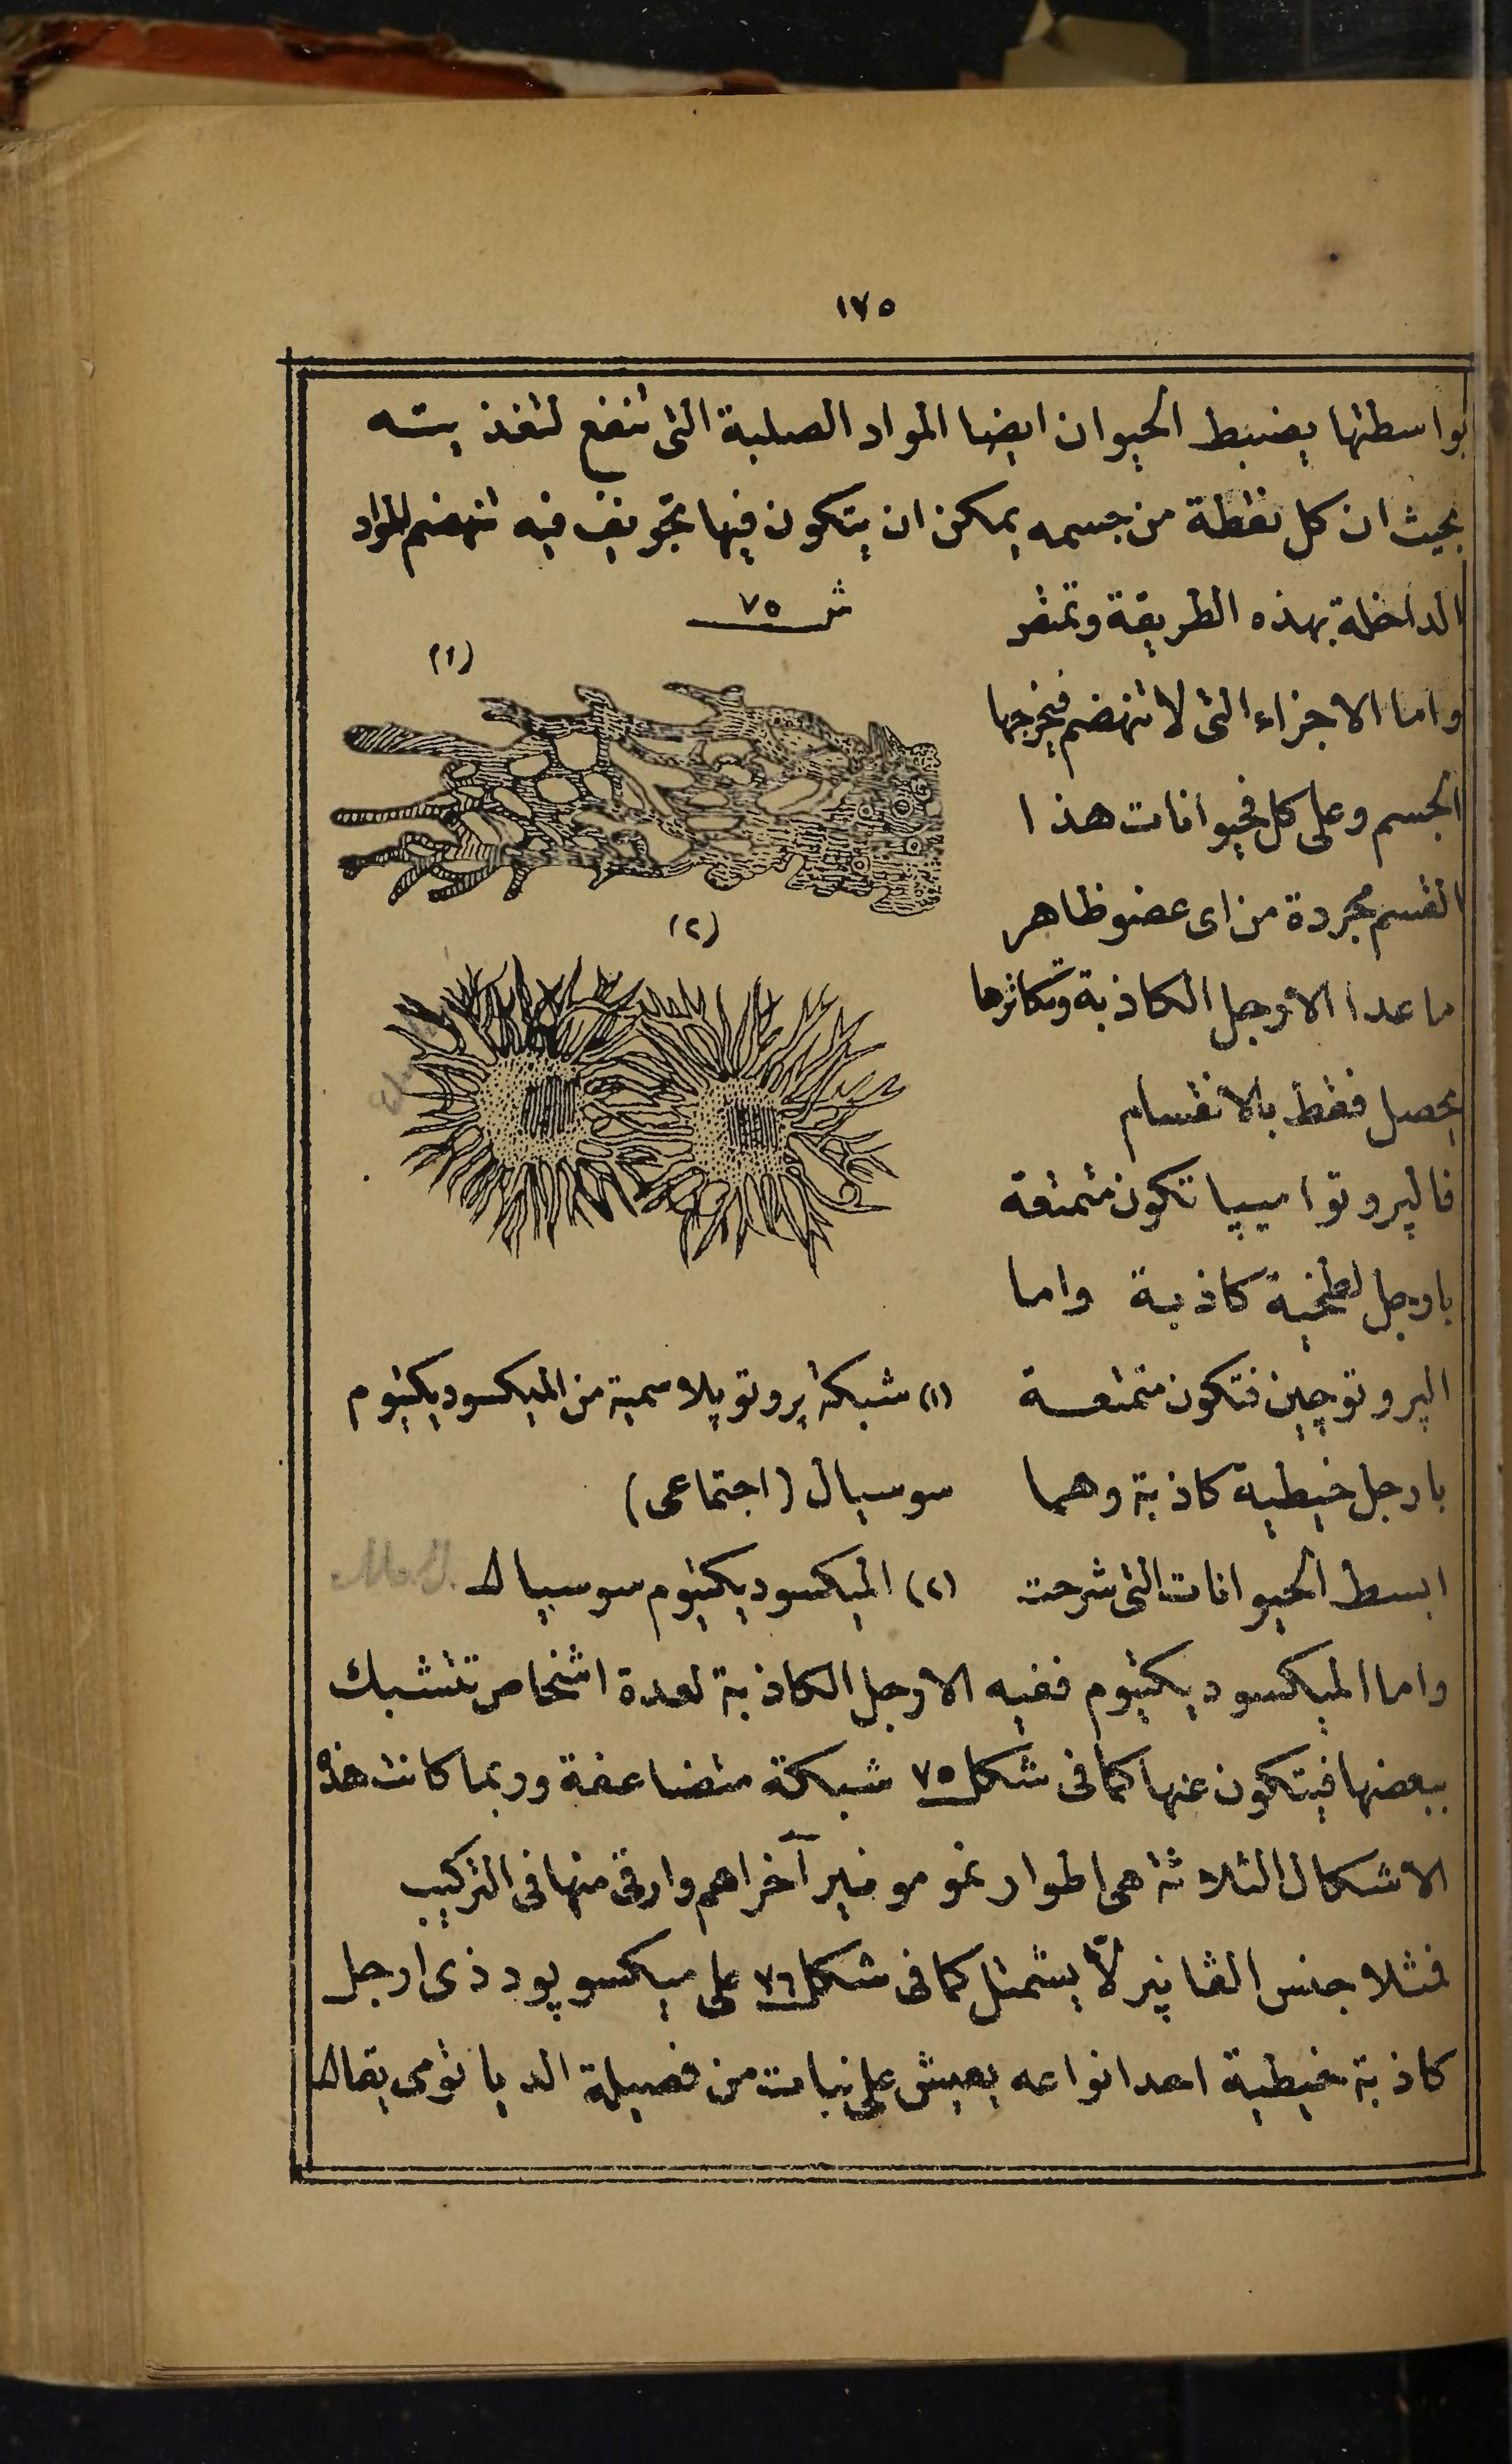 ١٧٥
بواسطتها يضبط الحيوان ايضا المواد الصلبة التى تنفع لتغذيته
بحيث ان كل نقطة من جسمه يمكن ان يتكون فيها تجويف فيه تنهضم المواد
الداخلة بهذه الطريقة وتمتص
واما الاجزاء التى لا تنهضم فيخرجها
الجسم وعلى كل فحيوانات هذا
القسم مجردة من اى عضو ظاهر
ما عدا الأرجل الكاذبة وتكاثرها
يحصل فقط بالانقسام
فالپروتواميبا تكون متمتعة
بارجل كاذبة واما
الپروتوچين فتكون متمتعة
بارجل خيطية كاذبة وهما
ابسط الحيوانات التى شرحت
ش ٧٥
(١)
(٢)
(١) شبكة پروتوپلاسمية من الميكسوديكتيوم
سوسيال (اجتماعى)
(٢) الميكسوديكتيوم سوسيال
واما الميكسوديكتيوم ففيه الارجل الكاذبة لعدة اشخاص تتشبك
ببعضها فيتكون عنها كما فى شكل ٧٥ شبكة متضاعفة وربما كانت هذه
الاشكال الثلاثة هى اطوار نمو مونير آخر اهم وارقى منها فى التركيب
فمثلا جنس الڤانپيرلّا يشتمل كما فى شكل ٧٦ على ميكسوپود ذى ارجل
كاذبة خيطية احد انواعه يعيش على نبات من فصيلة الدياتومى يقال